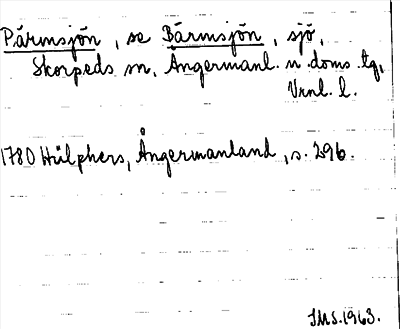 Pärmsjön, se Bärmsjön, sjö,
Skorpeds sn, Ångermanl. n. doms. tg,
Vrnl. l.
1780 Hülphers, Ångermanland, s. 296.
IMS. 1963.